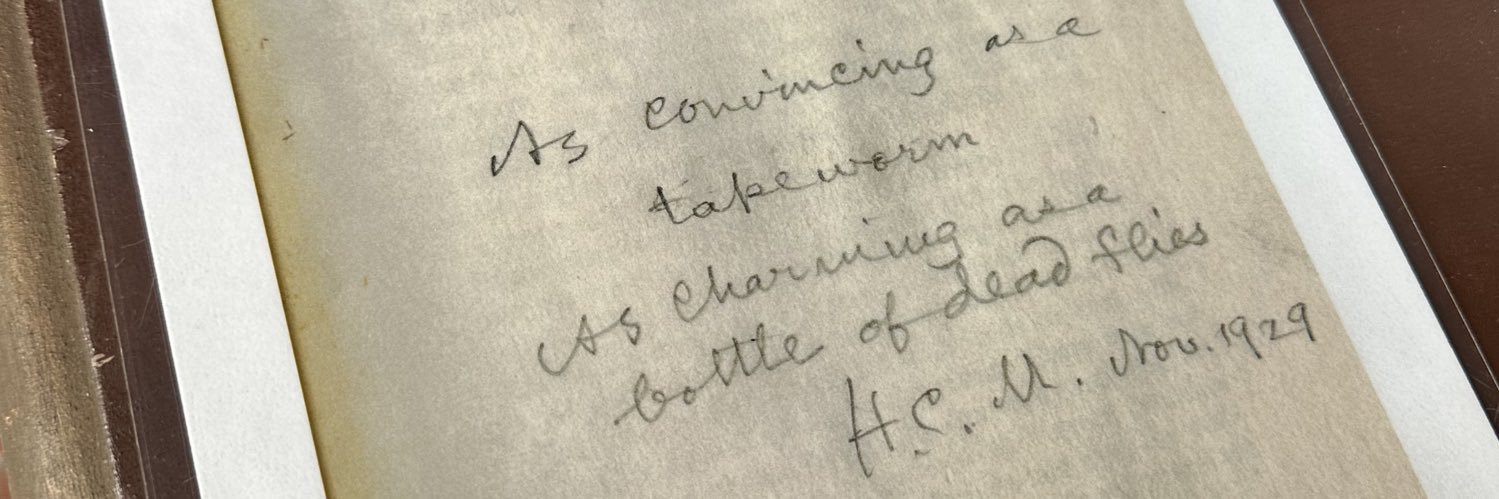 As convincing as a
tapeworm
As charming as a
bottle of dead flies
H.C.M. Nov. 1929